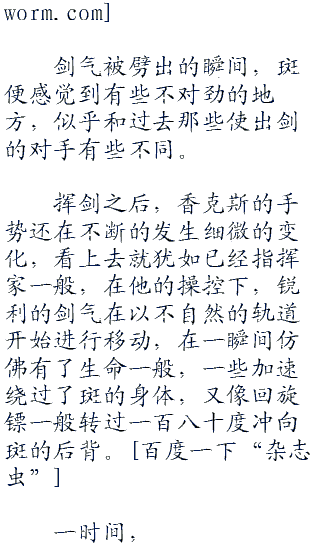 worm.com]
剑气被劈出的瞬间，斑
便感觉到有些不对劲的地
方，似乎和过去那些使出剑
的对手有些不同。
挥剑之后，香克斯的手
势还在不断的发生细微的变
化，看上去就犹如已经指挥
家一般，在他的操控下，锐
利的剑气在以不自然的轨道
开始进行移动，在一瞬间仿
佛有了生命一般，一些加速
绕过了斑的身体，又像回旋
镖一般转过一百八十度冲向
斑的后背。[百度一下“杂志
虫”]
一时间，